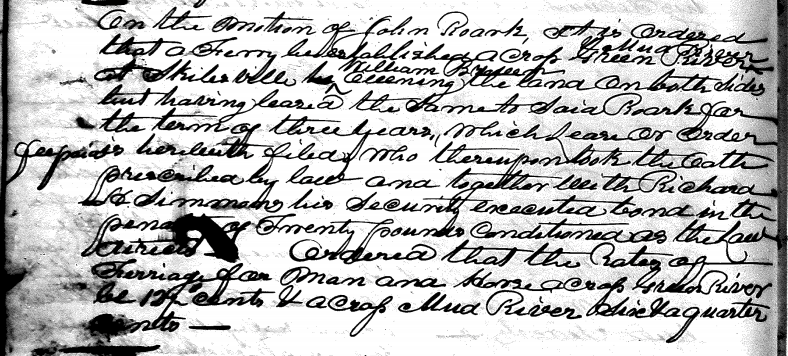 On the motion of John Roark, it is Ordered
& Mud River
that a Ferry be established across Green River
William Breeen
at Skilesville he Owening the land on both sides
but having leased the same to said Roark for
the term of three years, which Lease or Order
herewith filed, who thereupon took the oath
prescribed by law and together with Richard
Simmons his Security executed bond in the
of Twenty pounds Conditioned as the Law
directs Ordered that the Rates of
Ferriage for man and Horse across Green River
be 12½ cents & across Mud River Six & a quarter
cents —